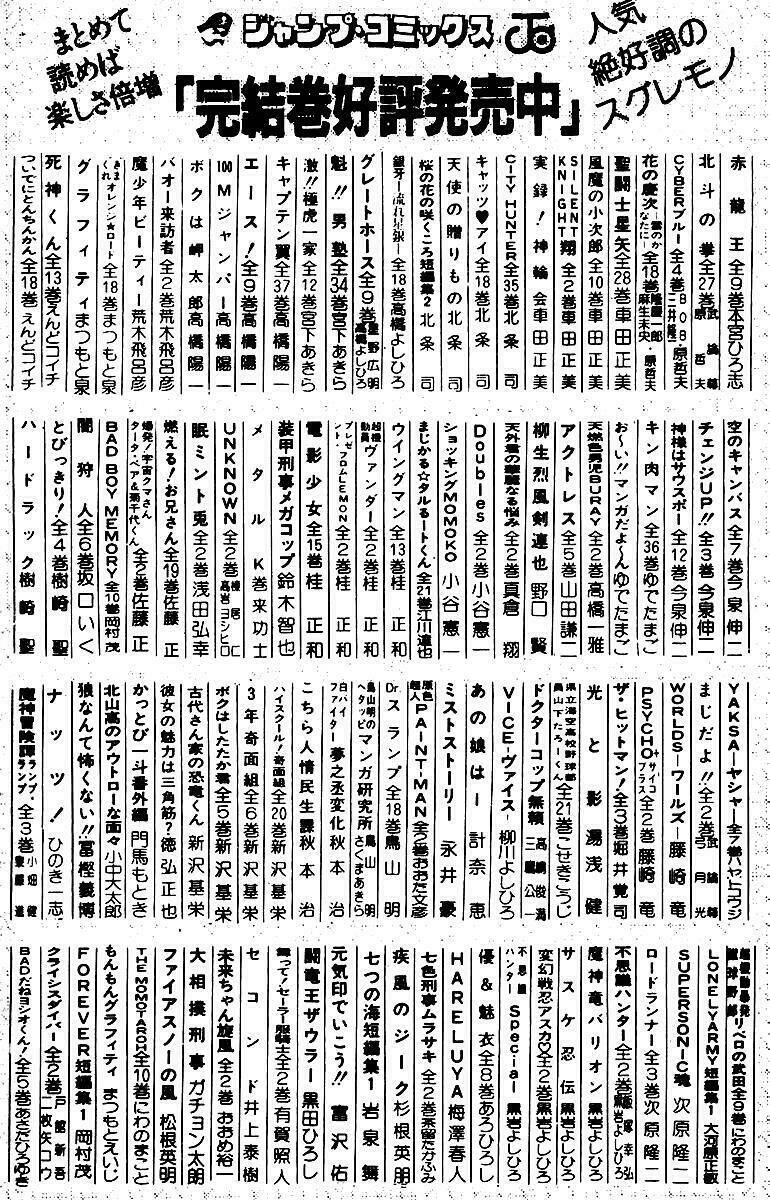 まとめて
読めば
楽しさ倍増
ジャンプ・コミックス
人気
絶好調の
スグレモノ
「完結巻好評発売中」
赤龍王 全9巻 本宮ひろ志
北斗の拳 全27巻 武論尊 原哲夫
CYBERブルー 全4巻 BOB 三井隆一 原哲夫
花の慶次―雲のかなたに― 全18巻 隆慶一郎 麻生未央 原哲夫
聖闘士星矢 全28巻 車田正美
風魔の小次郎 全10巻 車田正美
SILENT KNIGHT翔 全2巻 車田正美
実録!神輪会 車田正美
CITY HUNTER 全35巻 北条司
キャッツ♥アイ 全18巻 北条司
天使の贈りもの 北条司
桜の花の咲くころ 短編集2 北条司
銀牙―流れ星 銀― 全18巻 高橋よしひろ
グレートホース 全9巻 星野広明 高橋よしひろ
魁!!男塾 全34巻 宮下あきら
激!!極虎一家 全12巻 宮下あきら
キャプテン翼 全37巻 高橋陽一
エース! 全9巻 高橋陽一
100Mジャンパー 高橋陽一
ボクは岬太郎 高橋陽一
バオー来訪者 全2巻 荒木飛呂彦
魔少年ビーティー 荒木飛呂彦
きまぐれオレンジ★ロード 全18巻 まつもと泉
グラフィティ まつもと泉
死神くん 全13巻 えんどコイチ
ついでにとんちんかん 全18巻 えんどコイチ
空のキャンバス 全7巻 今泉伸二
チェンジUP!! 全3巻 今泉伸二
神様はサウスポー 全12巻 今泉伸二
キン肉マン 全36巻 ゆでたまご
お〜い!!マンガだよ〜ん ゆでたまご
天燃色男児BURAY 全2巻 高橋一雅
アクトレス 全5巻 山田謙二
柳生烈風剣連也 野口賢
天外君の華麗なる悩み 全2巻 真倉翔
Doubles 全2巻 小谷憲一
ショッキングMOMOKO 小谷憲一
まじかる☆タルるートくん 全21巻 江川達也
ウイングマン 全13巻 桂正和
超機動員ヴァンダー 全2巻 桂正和
プレゼント・フロムLEMON 全2巻 桂正和
電影少女 全15巻 桂正和
装甲刑事メガコップ 鈴木智也
メタルK 巻来功士
UNKNOWN 全2巻 棟居仁 高岩ヨシヒロ
眠兎 全2巻 浅田弘幸
燃える!お兄さん 全19巻 佐藤正
爆発!宇宙クマさん タータ・ベア&菊千代くん 全2巻 佐藤正
BAD BOY MEMORY 全10巻 岡村茂
闇狩人 全6巻 坂口いく
とびっきり! 全4巻 樹崎聖
ハードラック 樹崎聖
YAKSA―ヤシャ― 全7巻 ハヤトコウジ
まじだよ!! 全2巻 武論尊 弓月光
WORLDS―ワールズ― 藤崎竜
PSYCHO+ サイコプラス 全2巻 藤崎竜
ザ・ヒットマン! 全3巻 堀井覚司
光と影 湯浅健
県立海空高校野球部員山下たろーくん 全21巻 こせきこうじ
ドクターコップ無頼 高嶋俊満 三鷹公一
VICE―ヴァイス― 柳川よしひろ
あの娘は― 計奈恵
ミストストーリー 永井豪
原色超人PAINT-MAN 全2巻 おおた文彦
Dr.スランプ 全18巻 鳥山明
鳥山明のヘタッピマンガ研究所 鳥山明 さくまあきら
白バイファイター夢之丞変化 秋本治
こちら人情民生課 秋本治
ハイスクール!奇面組 全20巻 新沢基栄
3年奇面組 全6巻 新沢基栄
ボクはしたたか君 全5巻 新沢基栄
古代さん家の恐竜くん 新沢基栄
彼女の魅力は三角筋? 徳弘正也
かっとび一斗番外編 門馬もとき
北山高のアウトローな面々 小中大太郎
狼なんて怖くない!! 冨樫義博
ナッツ! ひのき一志
魔神冒険譚ランプ・ランプ 全3巻 小畑健 泉藤進
超機動暴発蹴球野郎リベロの武田 全9巻 にわのまこと
LONELY ARMY 短編集1 大河原正敏
SUPERSONIC魂 次原隆二
ロードランナー 全3巻 次原隆二
不思議ハンター 全2巻 飯塚幸弘 黒岩よしひろ
魔神竜バリオン 黒岩よしひろ
サスケ忍伝 黒岩よしひろ
変幻戦忍アスカ 全2巻 黒岩よしひろ
不思議ハンターSpecial 黒岩よしひろ
優&魅衣 全8巻 あろひろし
HARELUYA 梅澤春人
七色刑事ムラサキ 全2巻 茶留たかふみ
疾風のジーク 杉根英明
七つの海 短編集1 岩泉舞
元気印でいこう!! 富沢佑
闘竜王ザウラー 黒田ひろし
舞って!セーラー服騎士 全2巻 有賀照人
セコンド 井上泰樹
未来ちゃん旋風 全2巻 おおめ裕一
大相撲刑事 ガチョン太朗
ファイアスノーの風 松根英明
THE MOMOTAROH 全10巻 にわのまこと
もんもんグラフィティ まつもとえいじ
FOREVER 短編集1 岡村茂
クライシスダイバー 全2巻 戸館新吾 二枚矢コウ
BADだねヨシオくん! 全5巻 あさだひろゆき